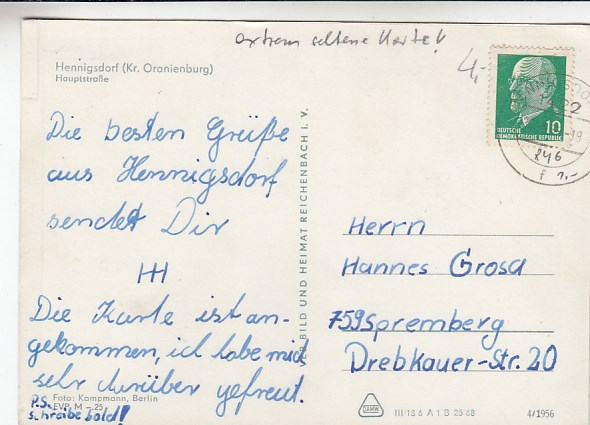 extrem seltene Karte!
4,-
Hennigsdorf (Kr. Oranienburg)
Hauptstraße
Die besten Grüße
aus Hennigsdorf
sendet Dir
HH
Die Karte ist an-
gekommen, ich habe mich
sehr darüber gefreut.
P.S.
schreibe bald!
Foto: Kampmann, Berlin
EVP M -,25
VEB BILD UND HEIMAT REICHENBACH I. V.
10
DEUTSCHE
DEMOKRATISCHE REPUBLIK
846
Herrn
Hannes Grosa
759 Spremberg
Drebkauer-Str. 20
DAMW
III/18/6 A 1 B 25 68
4/1956